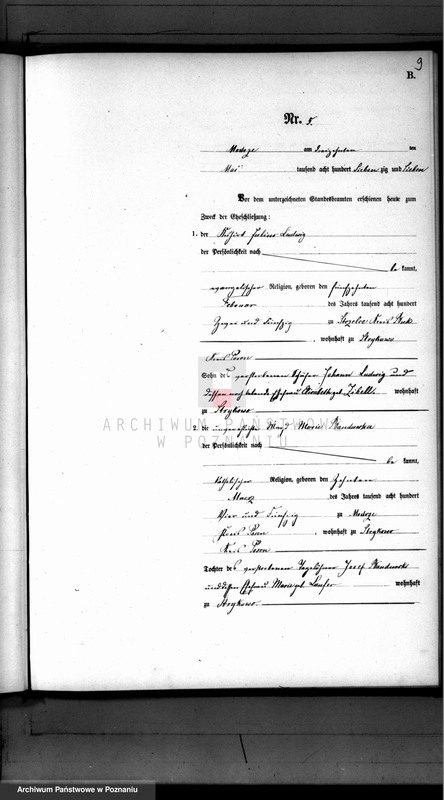 9
B.
Nr. 5.
Modrze am dreizehnten ten
Mai tausend acht hundert Sieben zig und Sieben
Vor dem unterzeichneten Standesbeamten erschienen heute zum
Zweck der Eheschließung:
1. der Julius Ludwig
der Persönlichkeit nach
be kannt,
evangelischer Religion, geboren den fünfzehnten
Februar des Jahres tausend acht hundert
und fünfzig zu Kreis
, wohnhaft zu Strykowo
Kreis Posen
Sohn des verstorbenen Johann Ludwig und
dessen geb. wohnhaft
zu Strykowo
2. die Magd Marie
der Persönlichkeit nach
be kannt,
katholischer Religion, geboren den Zehnten
Maerz des Jahres tausend acht hundert
Vier und Fünfzig zu Modrze
Kreis Posen, wohnhaft zu Strykowo
Kreis Posen
Tochter des verstorbenen Tagelöhner Josef
und dessen Ehefrau Marie geb. wohnhaft
zu Strykowo.
ARCHIWUM PAŃSTWOWE
W POZNANIU
Archiwum Państwowe w Poznaniu